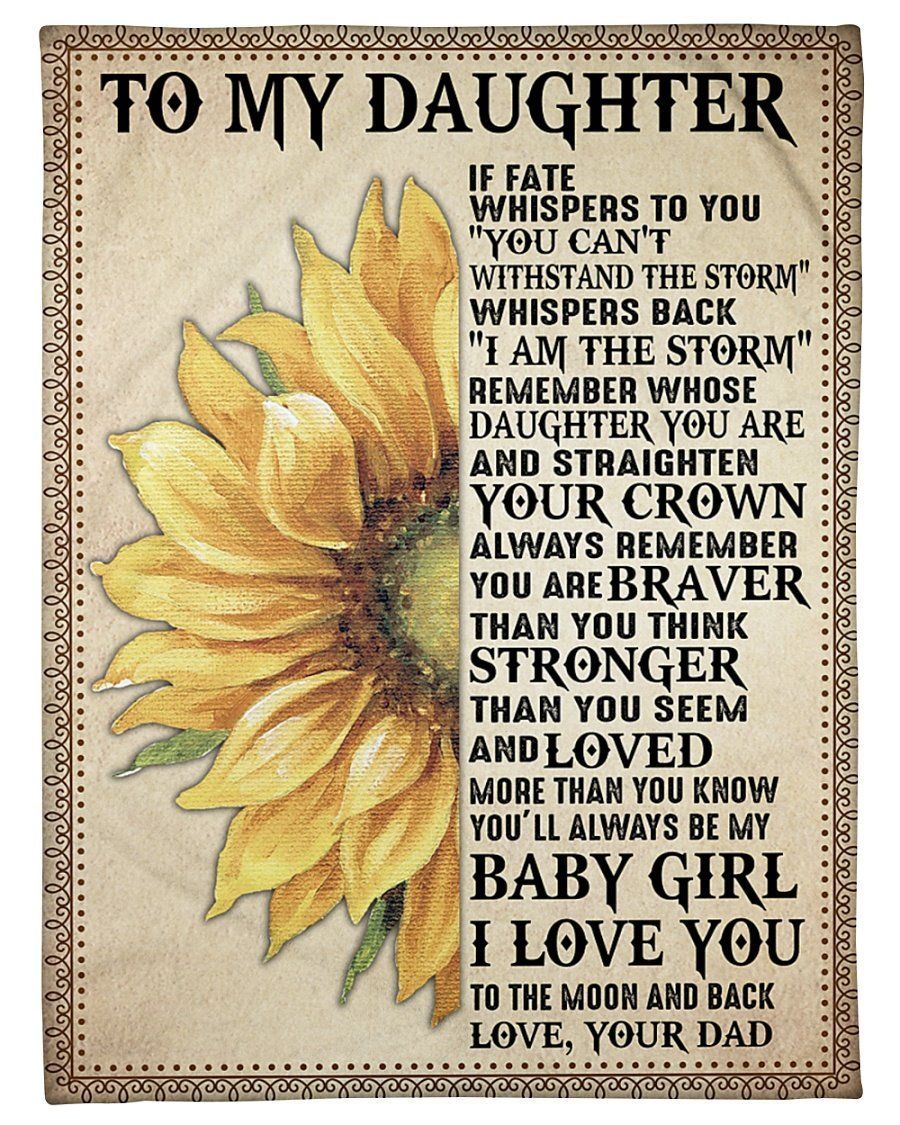 TO MY DAUGHTER
IF FATE
WHISPERS TO YOU
"YOU CAN'T
WITHSTAND THE STORM"
WHISPERS BACK
"I AM THE STORM"
REMEMBER WHOSE
DAUGHTER YOU ARE
AND STRAIGHTEN
YOUR CROWN
ALWAYS REMEMBER
YOU ARE BRAVER
THAN YOU THINK
STRONGER
THAN YOU SEEM
AND LOVED
MORE THAN YOU KNOW
YOU'LL ALWAYS BE MY
BABY GIRL
I LOVE YOU
TO THE MOON AND BACK
LOVE, YOUR DAD